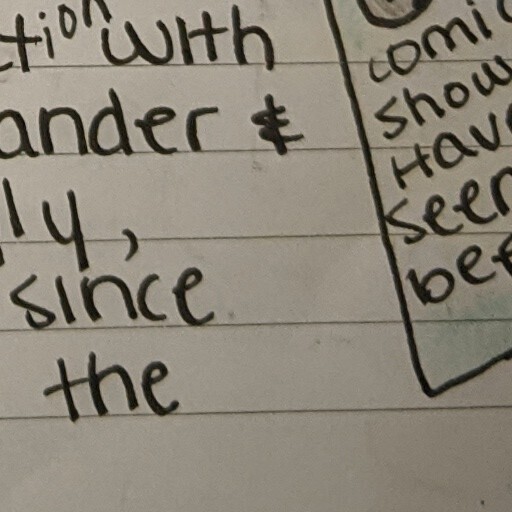 tion with
ander &
ly,
since
the
comic
show
Hav
seen
bef